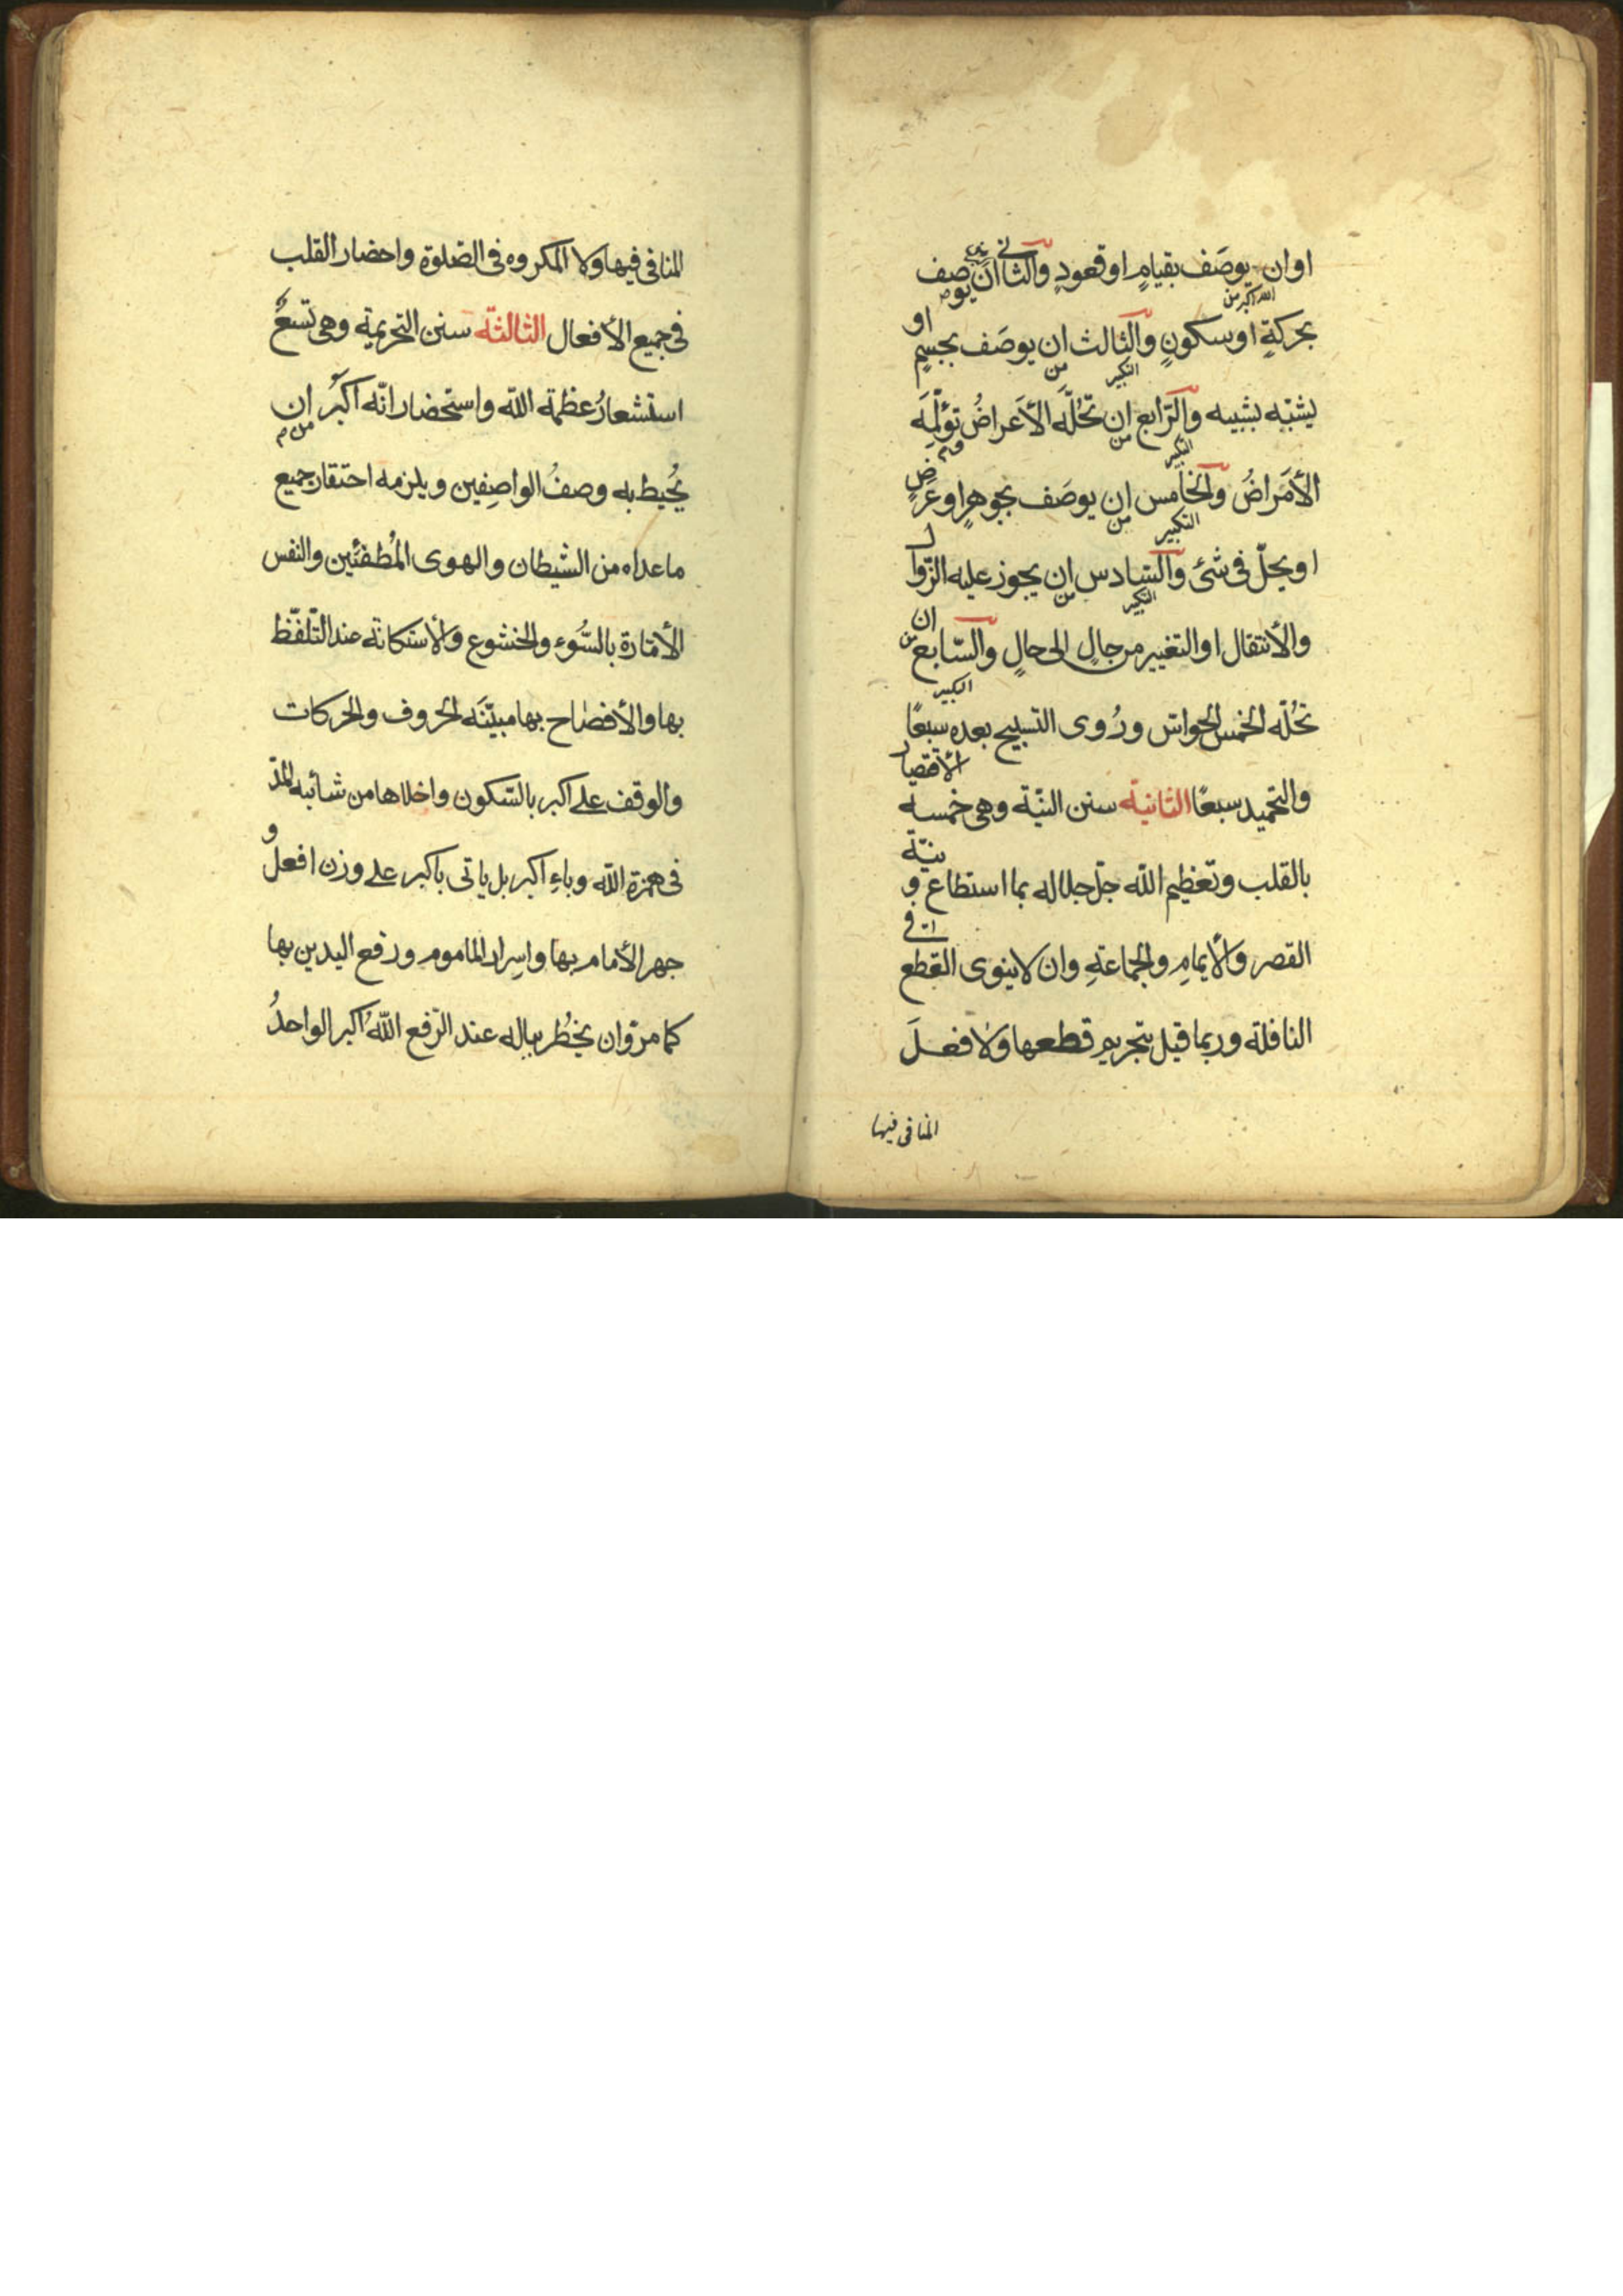 او ان يوصَف بقيامٍ او قعودٍ والثانى ان يوصف
الله اكبر من
بحركةٍ او سكونٍ والثالث ان يوصَف بجسمٍ او
التكبير من
يشبّه بشبيه والرّابع ان تحُلّه الأعَراضُ تؤلمَه
التكبير من
الأمَراضُ والخامس ان يوصَف بجوهرٍ او عَرَضٍ
التكبير من
او يحلّ فى شئ والسّادس ان يجوز عليه الزّوال
التكبير من
والأنتقال او التغيير من حالٍ الى حالٍ والسّابع ان
التكبير من
تحُلّه الخمس الحواسّ ورُوى التسبيح بعده سبعًا
والتحميد سبعًا الثانية سنن النيّة وهى خمسه الأقتصار
بالقلب وتعظيم الله جلّ جلاله بما استطاع و نيّة
القصر والأتمامِ والجماعةِ وان لا ينوى القطع فى
النافلة وربما قيل بتحريم قطعها ولا فعلَ
المنافى فيها
المنافى فيها ولا المكروه فى الصّلوة واحضار القلب
فى جميع الأفعال الثالثة سنن التحريمة وهى تسعٌ
استشعارُ عظمة الله واستحضار انّه اكبرُ من ان
يُحيط به وصفُ الواصِفين ويلزمه احتقار جميع
ما عداه من الشيطان والهوى المُطغئَين والنفس
الأمّارة بالسُّوء والخشوع والأستكانة عند التّلفّظ
بها والأفصاح بها مبيّنَه الحروف والحركات
والوقف على اكبر بالسّكون واخلاها من شائبه المدّ
فى همزة الله وباءِ اكبر بل ياتى باكبر على وزن افعلُ و
جهر الأمام بها واسِرار الماموم ورفع اليدين بها
كما مرّ وان يخطُر بباله عند الرّفع اللّهُ اكبر الواحدُ